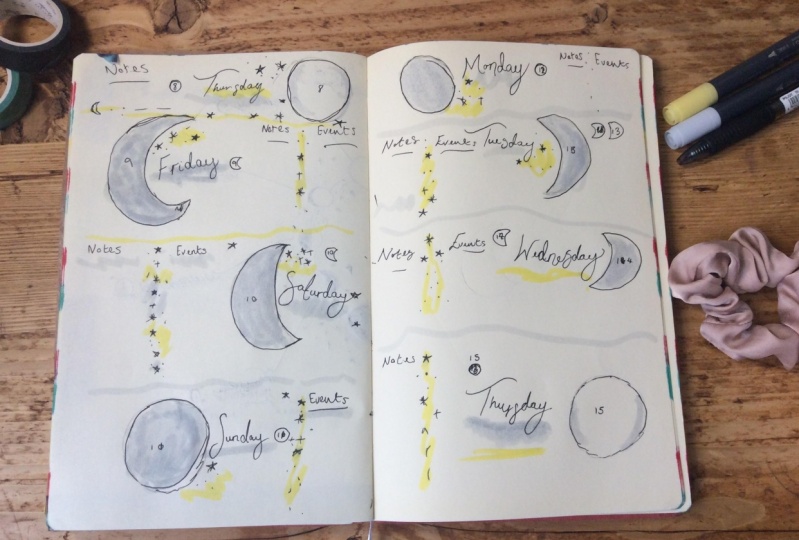 Notes
8 Thursday 8
Notes Events
9 Friday 9
Notes Events
10
10 Saturday
Events
10 Sunday
Monday 12 Notes Events
Notes Events Tuesday 13 13
Notes Events 14 Wednesday 14
Notes 15
Thursday 15